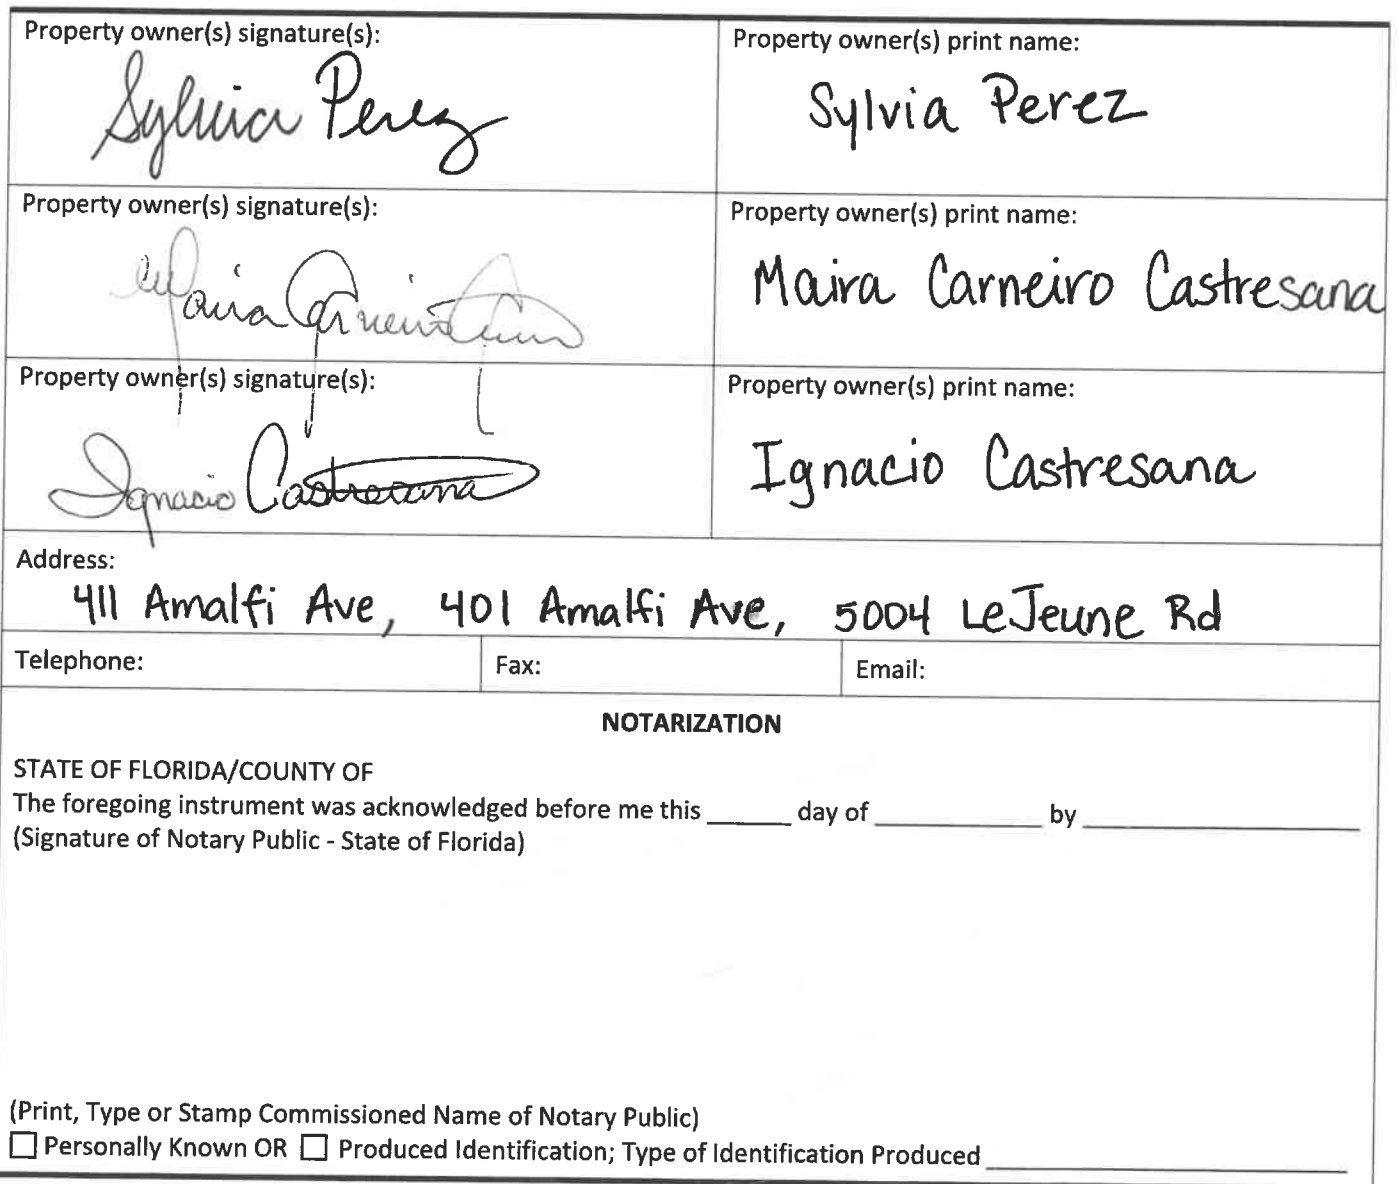 Property owner(s) signature(s): Property owner(s) print name:
Sylvia Perez Sylvia Perez
Property owner(s) signature(s): Property owner(s) print name:
Maira Carneiro Maira Carneiro Castresana
Property owner(s) signature(s): Property owner(s) print name:
Ignacio Castresana Ignacio Castresana
Address:
411 Amalfi Ave, 401 Amalfi Ave, 5004 LeJeune Rd
Telephone: Fax: Email:
NOTARIZATION
STATE OF FLORIDA/COUNTY OF
The foregoing instrument was acknowledged before me this ______ day of ____________ by ____________________
(Signature of Notary Public - State of Florida)
(Print, Type or Stamp Commissioned Name of Notary Public)
☐ Personally Known OR ☐ Produced Identification; Type of Identification Produced __________________________